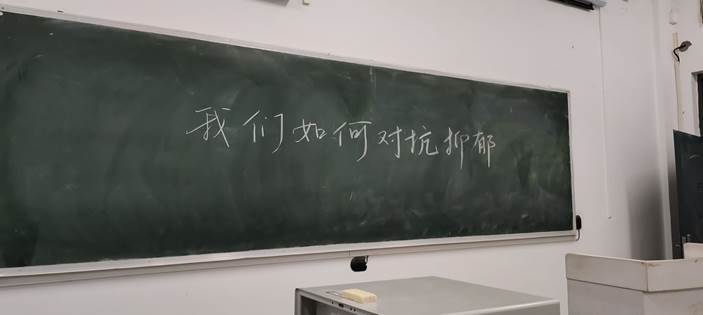 我们如何对抗抑郁